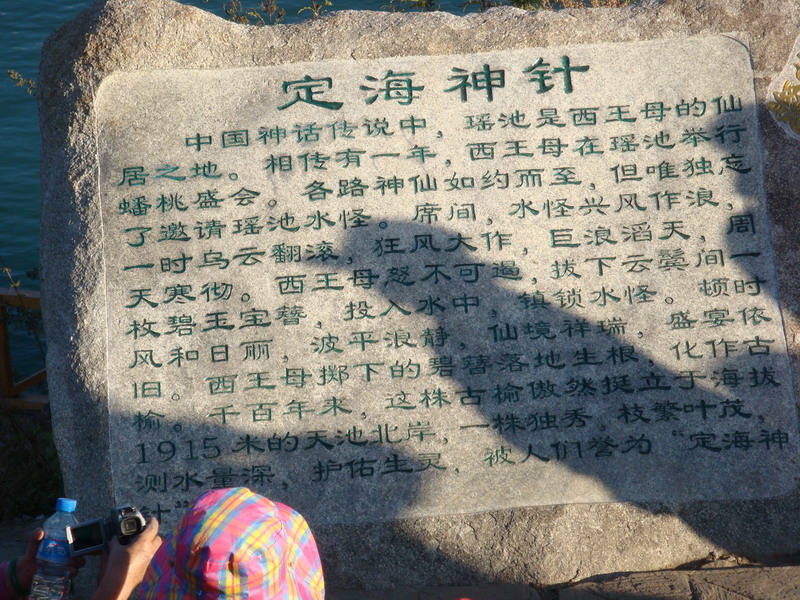 定海神针
中国神话传说中，瑶池是西王母的仙
居之地。相传有一年，西王母在瑶池举行
蟠桃盛会。各路神仙如约而至，但唯独忘
了邀请瑶池水怪。席间，水怪兴风作浪，
一时乌云翻滚，狂风大作，巨浪滔天，周
天寒彻。西王母怒不可遏，拔下云鬓间一
枚碧玉宝簪，投入水中，镇锁水怪。顿时
风和日丽，波平浪静，仙境祥瑞，盛宴依
旧。西王母掷下的碧簪落地生根，化作古
榆。千百年来，这株古榆傲然挺立于海拔
1915米的天池北岸，一株独秀，枝繁叶茂，
测水量深，护佑生灵，被人们誉为“定海神
针”